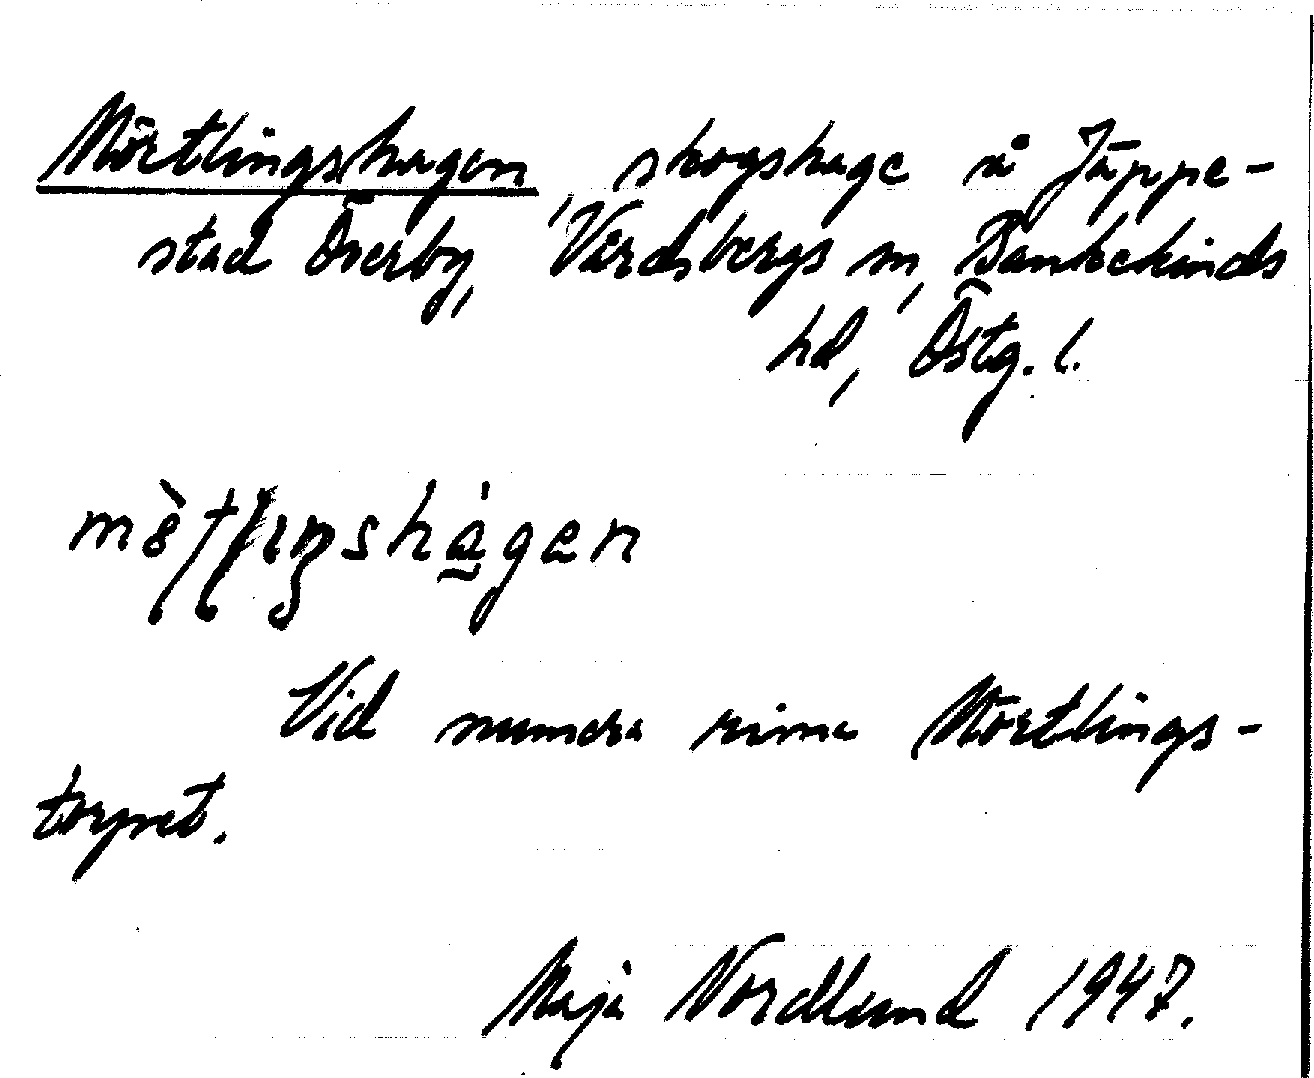 Mörtlingshagen, skogshage å Jäppe-
stad Överby, Vårdsbergs sn, Bankekinds
hd, Östg. l.
Vid numera rivna Mörtlings-
torpet.
Maja Nordlund 1947.